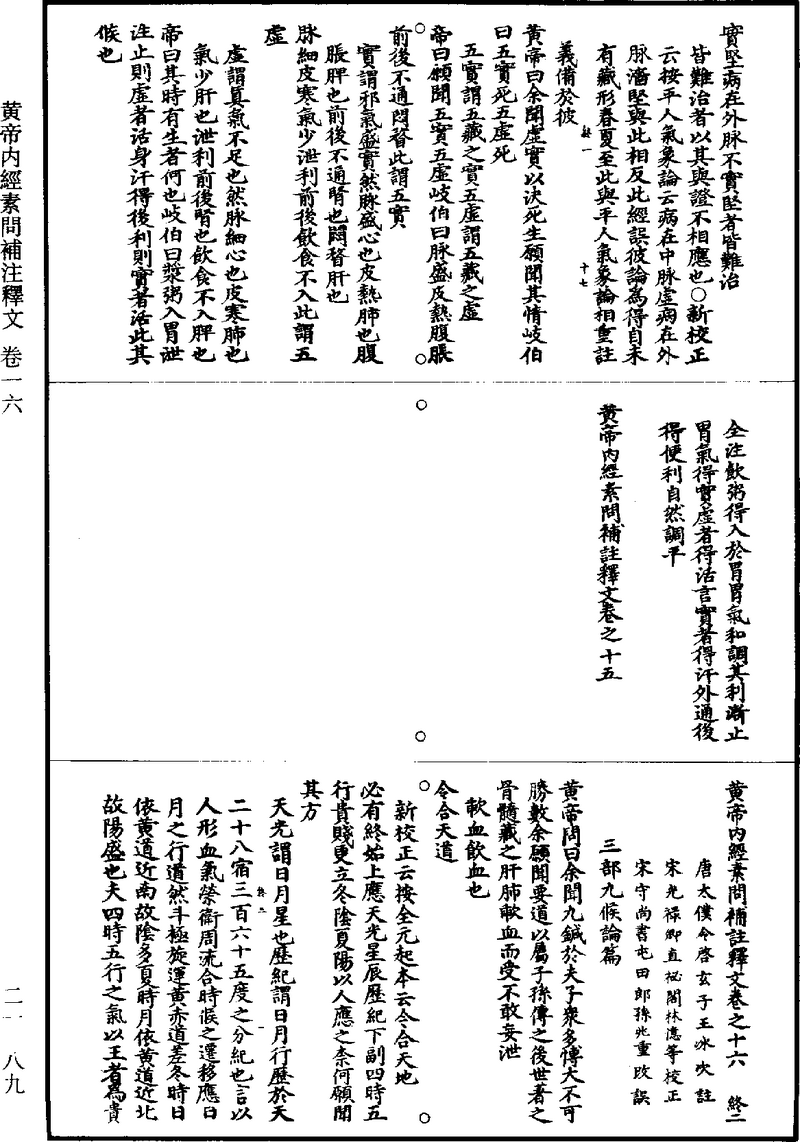 實堅病在外脉不實堅者皆難治
皆難治者以其與證不相應也○新校正
云按平人氣象論云病在中脉虛病在外
脉濇堅與此相反此經誤彼論為得自未
有藏形春夏至此與平人氣象論相重註
義備於彼
黃帝曰余聞虛實以決死生願聞其情岐伯
曰五實死五虛死
五實謂五藏之實五虛謂五藏之虛
帝曰願聞五實五虛岐伯曰脉盛皮熱腹脹
前後不通悶瞀此謂五實
實謂邪氣盛實然脉盛心也皮熱肺也腹
脹脾也前後不通腎也悶瞀肝也
脉細皮寒氣少泄利前後飲食不入此謂五
虛
虛謂真氣不足也然脉細心也皮寒肺也
氣少肝也泄利前後腎也飲食不入脾也
帝曰其時有生者何也岐伯曰漿粥入胃泄
注止則虛者活身汗得後利則實者活此其
候也
全注飲粥得入於胃胃氣和調其利漸止
胃氣得實虛者得活言實者得汗外通後
得便利自然調平
黃帝內經素問補註釋文卷之十五
黃帝內經素問補註釋文卷之十六 終二
唐太僕令啓玄子王冰次註
宋光祿卿直祕閣林億等校正
宋守尚書屯田郎孫兆重改誤
三部九候論篇
黃帝問曰余聞九鍼於夫子衆多博大不可
勝數余願聞要道以屬子孫傳之後世著之
骨髓藏之肝肺歃血而受不敢妄泄
歃血飲血也
令合天道
新校正云按全元起本云令合天地
必有終始上應天光星辰歷紀下副四時五
行貴賤更立冬陰夏陽以人應之奈何願聞
其方
天光謂日月星也歷紀謂日月行歷於天
二十八宿三百六十五度之分紀也言以
人形血氣榮衛周流合時候之遷移應日
月之行道然斗極旋運黃赤道差冬時日
依黃道近南故陰多夏時月依黃道近北
故陽盛也夫四時五行之氣以王者為貴
黄帝内經素問補注釋文 卷一六
二一 八九